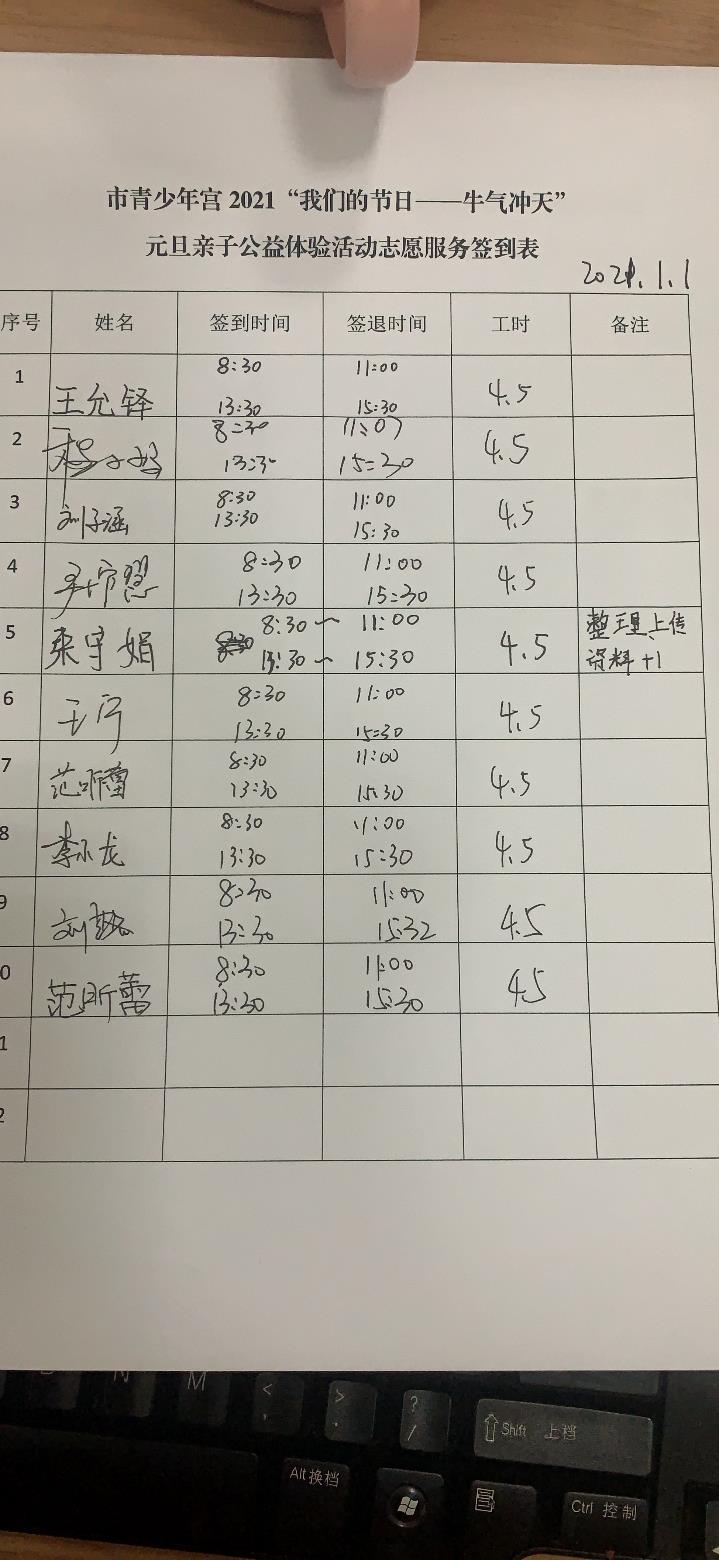 市青少年宫 2021 “我们的节日——牛气冲天”
元旦亲子公益体验活动志愿服务签到表
2021.1.1
序号 姓名 签到时间 签退时间 工时 备注
1 王允铎 8:30 11:00 4.5
13:30 15:30
2 8:30 11:07 4.5
13:30 15:30
3 刘子涵 8:30 11:00 4.5
13:30 15:30
4 8:30 11:00 4.5
13:30 15:30
5 栾宇娟 8:30～ 11:00 4.5 整理上传
13:30～ 15:30 资料+1
6 王宁 8:30 11:00 4.5
13:30 15:30
7 范昕蕾 8:30 11:00 4.5
13:30 15:30
8 李小龙 8:30 11:00 4.5
13:30 15:30
9 8:30 11:00 4.5
13:30 15:32
0 范昕蕾 8:30 11:00 4.5
13:30 15:30
1
2
N M < , > . ? / Shift 上档
Alt 换档 Ctrl 控制